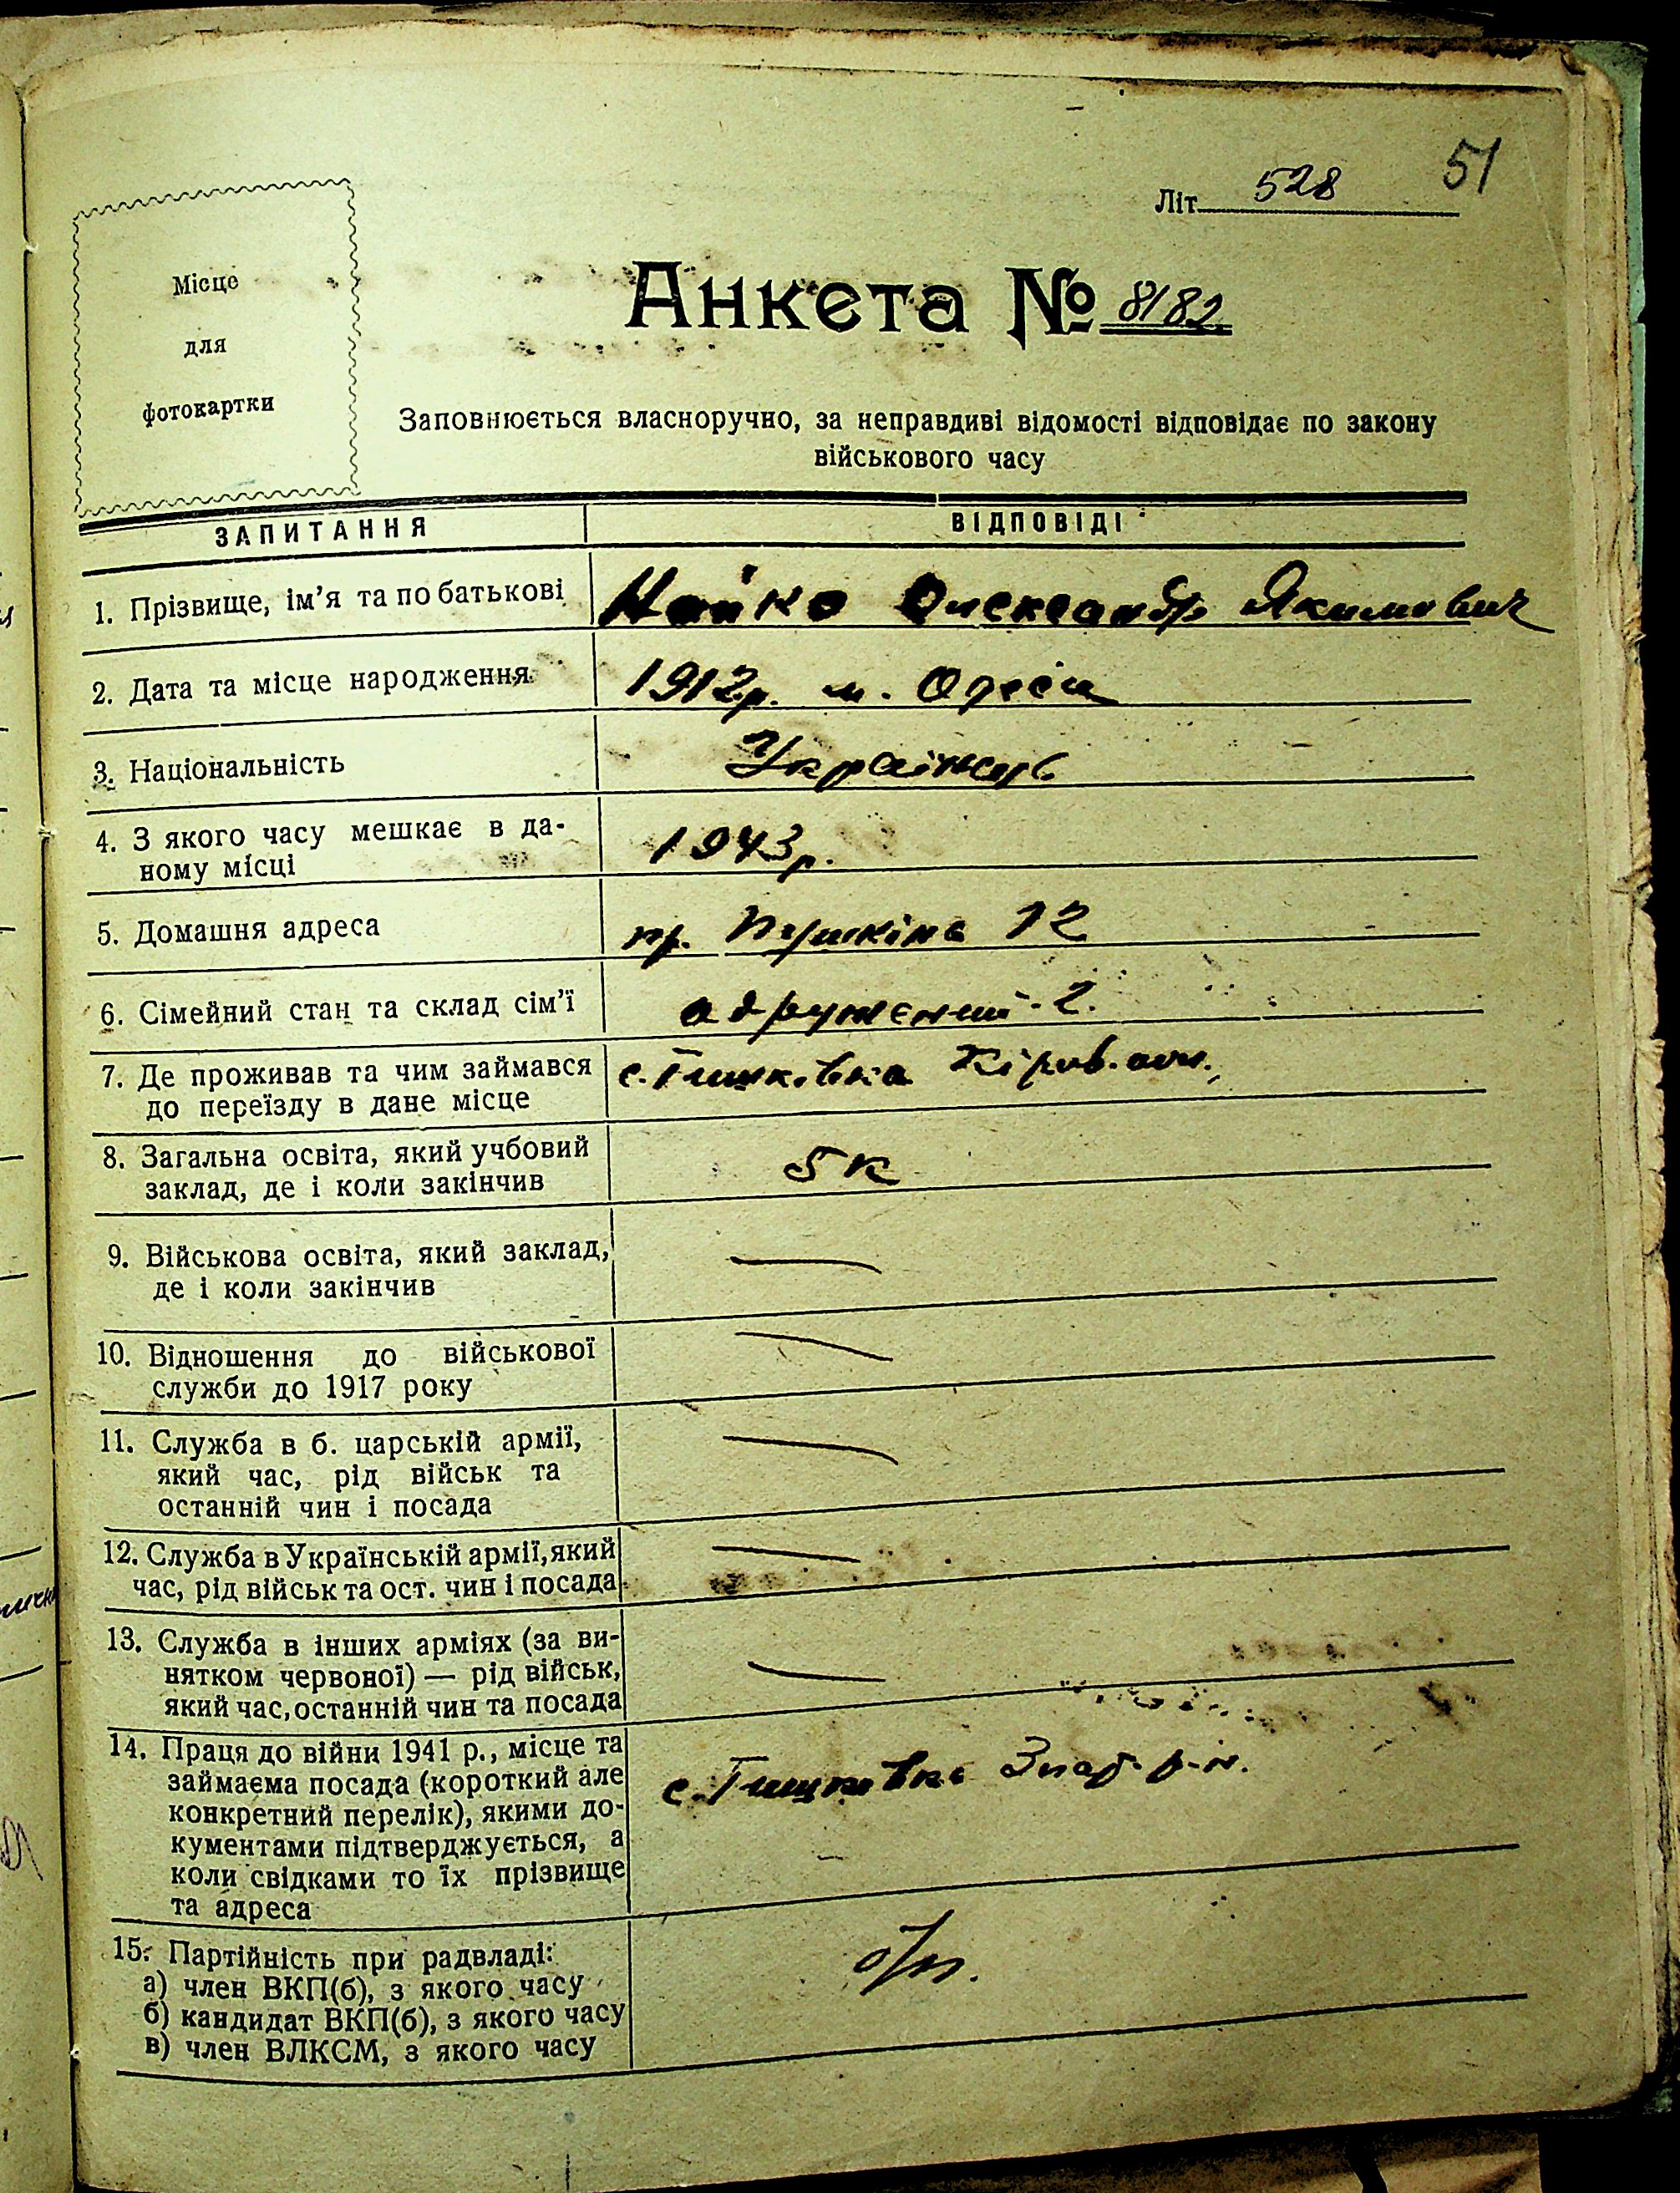 51
Літ 528
Місце
для
фотокартки
Анкета № 8182
Заповнюється власноручно, за неправдиві відомості відповідає по закону
військового часу
ЗАПИТАННЯ ВІДПОВІДІ
1. Прізвище, ім'я та по батькові Олександр Якимович
2. Дата та місце народження 1912р. м. Одеса
3. Національність Українець
4. З якого часу мешкає в да-
ному місці 1943р.
5. Домашня адреса пр. Пушкіна 12
6. Сімейний стан та склад сім'ї одружений - 2.
7. Де проживав та чим займався с. Тишківка Кіров. обл.,
до переїзду в дане місце
8. Загальна освіта, який учбовий
заклад, де і коли закінчив 5 к
9. Військова освіта, який заклад, —
де і коли закінчив
10. Відношення до військової —
служби до 1917 року
11. Служба в б. царській армії, —
який час, рід військ та
останній чин і посада
12. Служба в Українській армії, який —
час, рід військ та ост. чин і посада
13. Служба в інших арміях (за ви-
нятком червоної) — рід військ, —
який час, останній чин та посада
14. Праця до війни 1941 р., місце та
займаєма посада (короткий але с. Тишковка р-н.
конкретний перелік), якими до-
кументами підтверджується, а
коли свідками то їх прізвище
та адреса
15. Партійність при радвладі:
а) член ВКП(б), з якого часу б/п.
б) кандидат ВКП(б), з якого часу
в) член ВЛКСМ, з якого часу